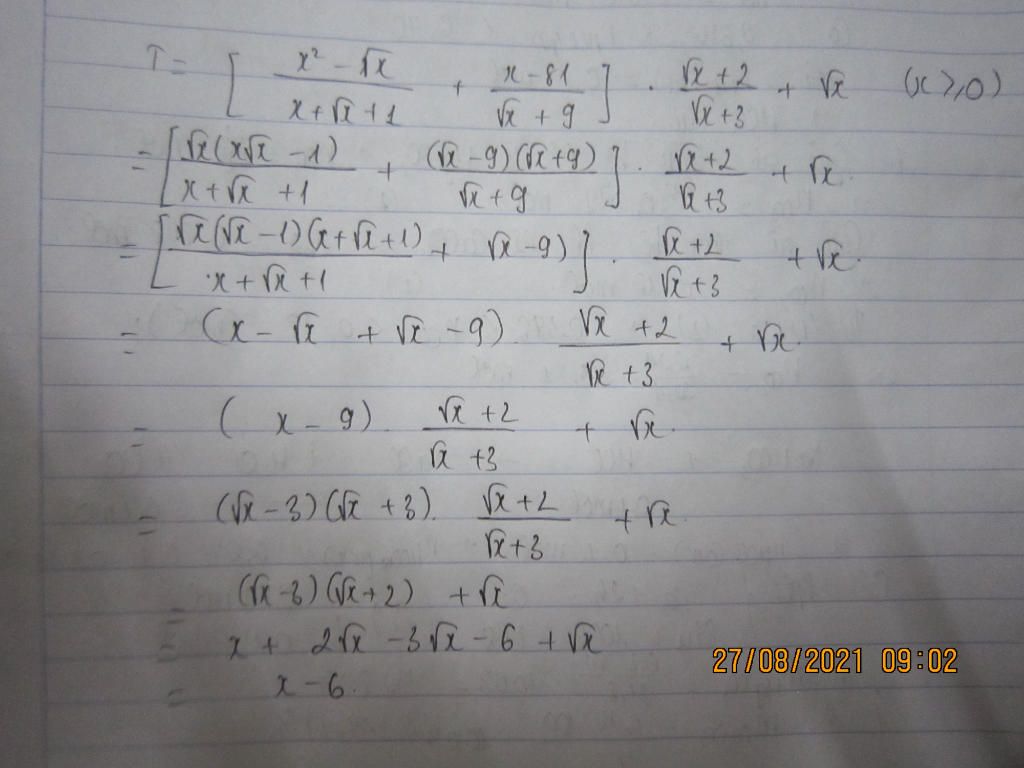 T = [ (x² - √x)/(x + √x + 1) + (x - 81)/(√x + 9) ] . (√x + 2)/(√x + 3) + √x (x ≥ 0)
= [ √x(x√x - 1)/(x + √x + 1) + (√x - 9)(√x + 9)/(√x + 9) ] . (√x + 2)/(√x + 3) + √x.
= [ √x(√x - 1)(x + √x + 1)/(x + √x + 1) + √x - 9) ] . (√x + 2)/(√x + 3) + √x.
= (x - √x + √x - 9) . (√x + 2)/(√x + 3) + √x.
= (x - 9) . (√x + 2)/(√x + 3) + √x.
= (√x - 3)(√x + 3) . (√x + 2)/(√x + 3) + √x.
= (√x - 3)(√x + 2) + √x
= x + 2√x - 3√x - 6 + √x
= x - 6.
27/08/2021 09:02